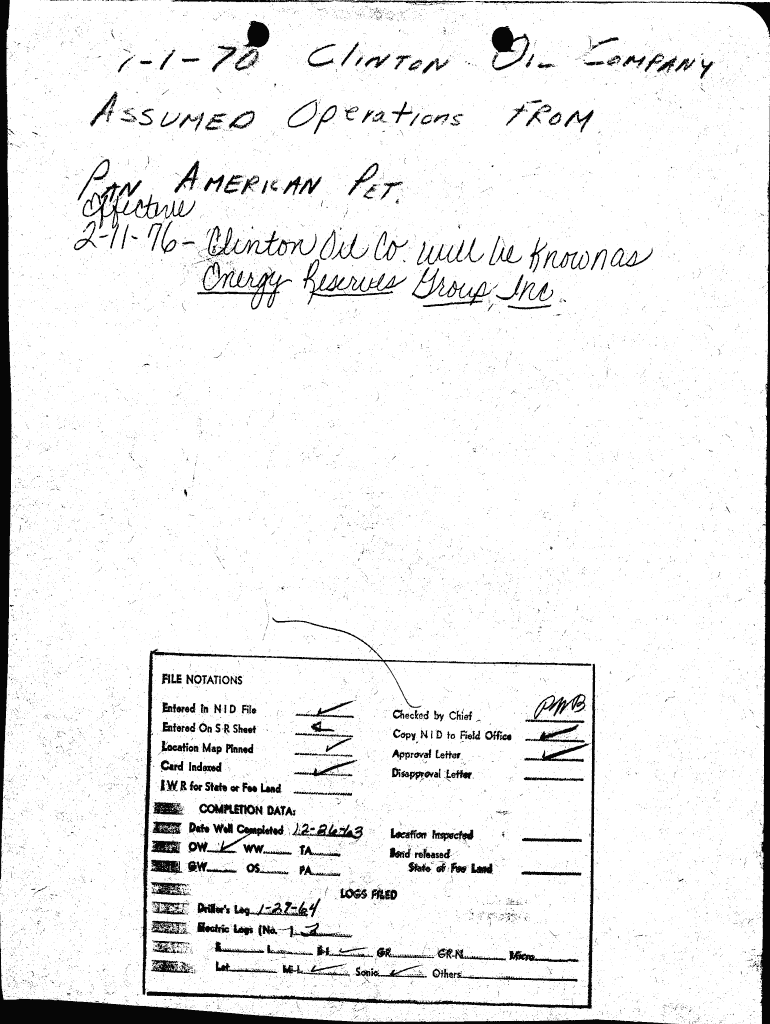 1-1-70 Clinton Oil Company
Assumed Operations from
Pan American Pet.
Effective
2-11-76 - Clinton Oil Co. will be known as
Energy Reserves Group, Inc.
FILE NOTATIONS
Entered in N I D File ✓
Checked by Chief PWB
Entered On S R Sheet
Copy N I D to Field Office ✓
Location Map Pinned ✓
Approval Letter ✓
Card Indexed ✓
Disapproval Letter
I W R for State or Fee Land
COMPLETION DATA:
Date Well Completed 12-26-63
Location Inspected
OW ✓ WW TA
Bond released
GW OS PA
State of Fee Land
LOGS FILED
Driller's Log 1-29-64
Electric Logs (No. ) 3
E I E-I ✓ GR GR-N Micro
Lat Mi-L ✓ Sonic ✓ Others